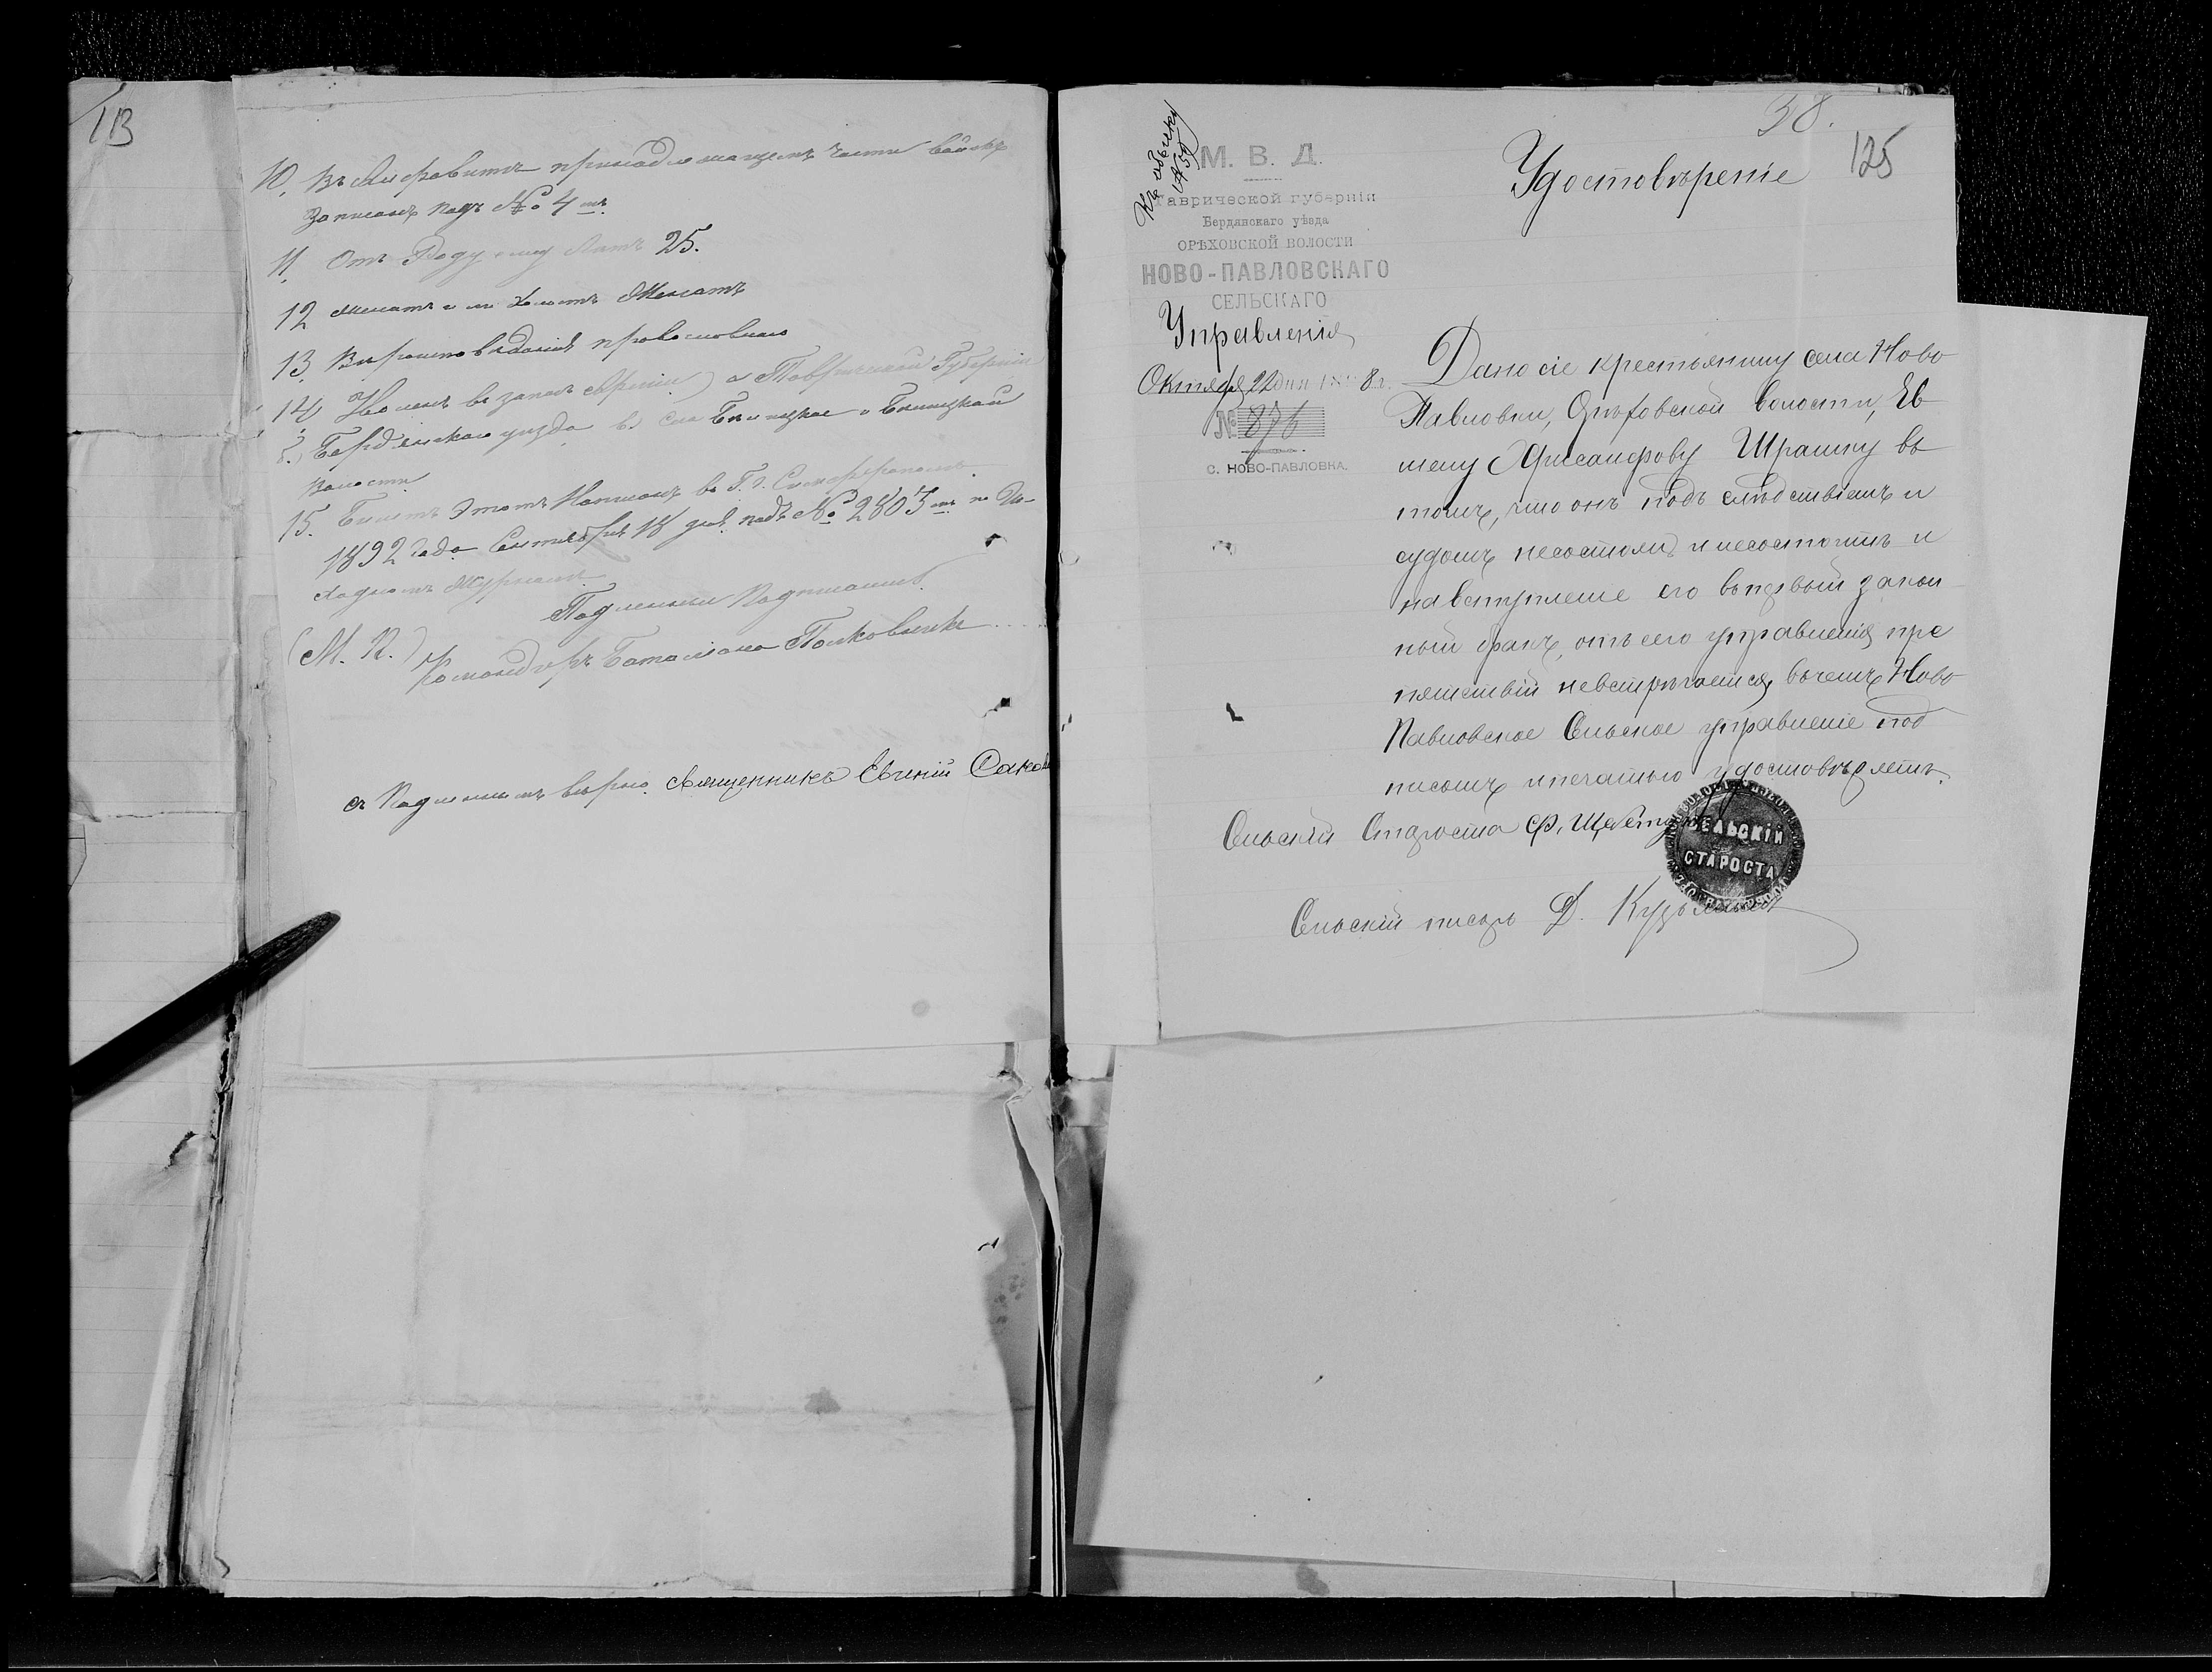 113
10. Въ Алфавитъ принадлежащемъ части войскъ
Записанъ подъ № 4 мъ.
11. Отъ Роду ему Лѣтъ 25.
12 Женатъ или Холостъ Женатъ
13. Вѣроисповѣданія православнаго
14 Уволенъ въ запасъ Арміи) а Таврической Губерніи
б.) Бердянскаго уезда въ село
Волости
15. Билетъ Этотъ Написанъ въ Г. Симферополь
1892 Года Сентября 18 дня подъ № 2803 мъ по Ис-
ходномъ Журналу
Подлинный Подписалъ
(М. П.) Командиръ Баталіона Полковникъ ....
съ Подлиннымъ вѣрно Священникъ Евгеній
38.
125
Къ обыску
№ 50
М. В. Д.
Таврической губерніи
Бердянскаго уѣзда
ОРѢХОВСКОЙ ВОЛОСТИ
НОВО-ПАВЛОВСКАГО
СЕЛЬСКАГО
Управленія
Октября 22 дня 189 8 г.
№ 876
С. НОВО-ПАВЛОВКА.
Удостовѣреніе
Дано сіе крестьянину села Ново
Павловки, Орѣховской волости, Ев
Хрисанфову Шрамку въ
томъ, что онъ подъ слѣдствіемъ и
судомъ несостоялъ и несостоитъ и
навступленіе его въпервый закон
ный бракъ, отъ сего управленія пре
пятствій невстрѣчается, въчемъ Ново
Павловское Сельское управленіе под
писомъ ипечатью удостовѣряетъ.
Сельскій Староста Ф.
СЕЛЬСКІЙ
СТАРОСТА
Сельскій писарь Д.